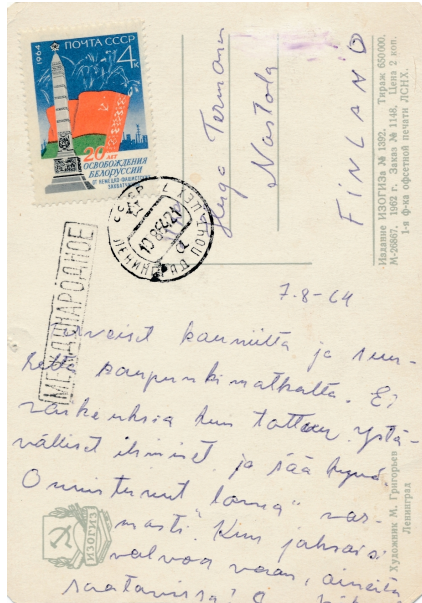 1964
ПОЧТА СССР
4к
20 ЛЕТ
ОСВОБОЖДЕНИЯ
БЕЛОРУССИИ
ОТ НЕМЕЦКО-ФАШИСТСКИХ
ЗАХВАТЧИКОВ
СССР
ЛЕНИНГРАД ПОЧТАМТ
10864-21
МЕЖДУНАРОДНОЕ
Termanen
Nastola
FINLAND
Издание ИЗОГИЗа № 1302. Тираж 650000.
М-26867. 1962 г. Заказ № 1148. Цена 2 коп.
1-я Ф-ка офсетной печати ЛСНХ.
7-8-64
Terveiset kauniilta ja suu-
relta kaupunkimatkalta. Ei
vaikeuksia kun tottuu. Ystä-
välliset ihmiset ja sää hyvä.
Onnistunut loma" var-
masti. Kun jaksaisi
valvoa vaan, aineita
saatavissa!
ИЗОГИЗ
Художник М. Григорьев
Ленинград